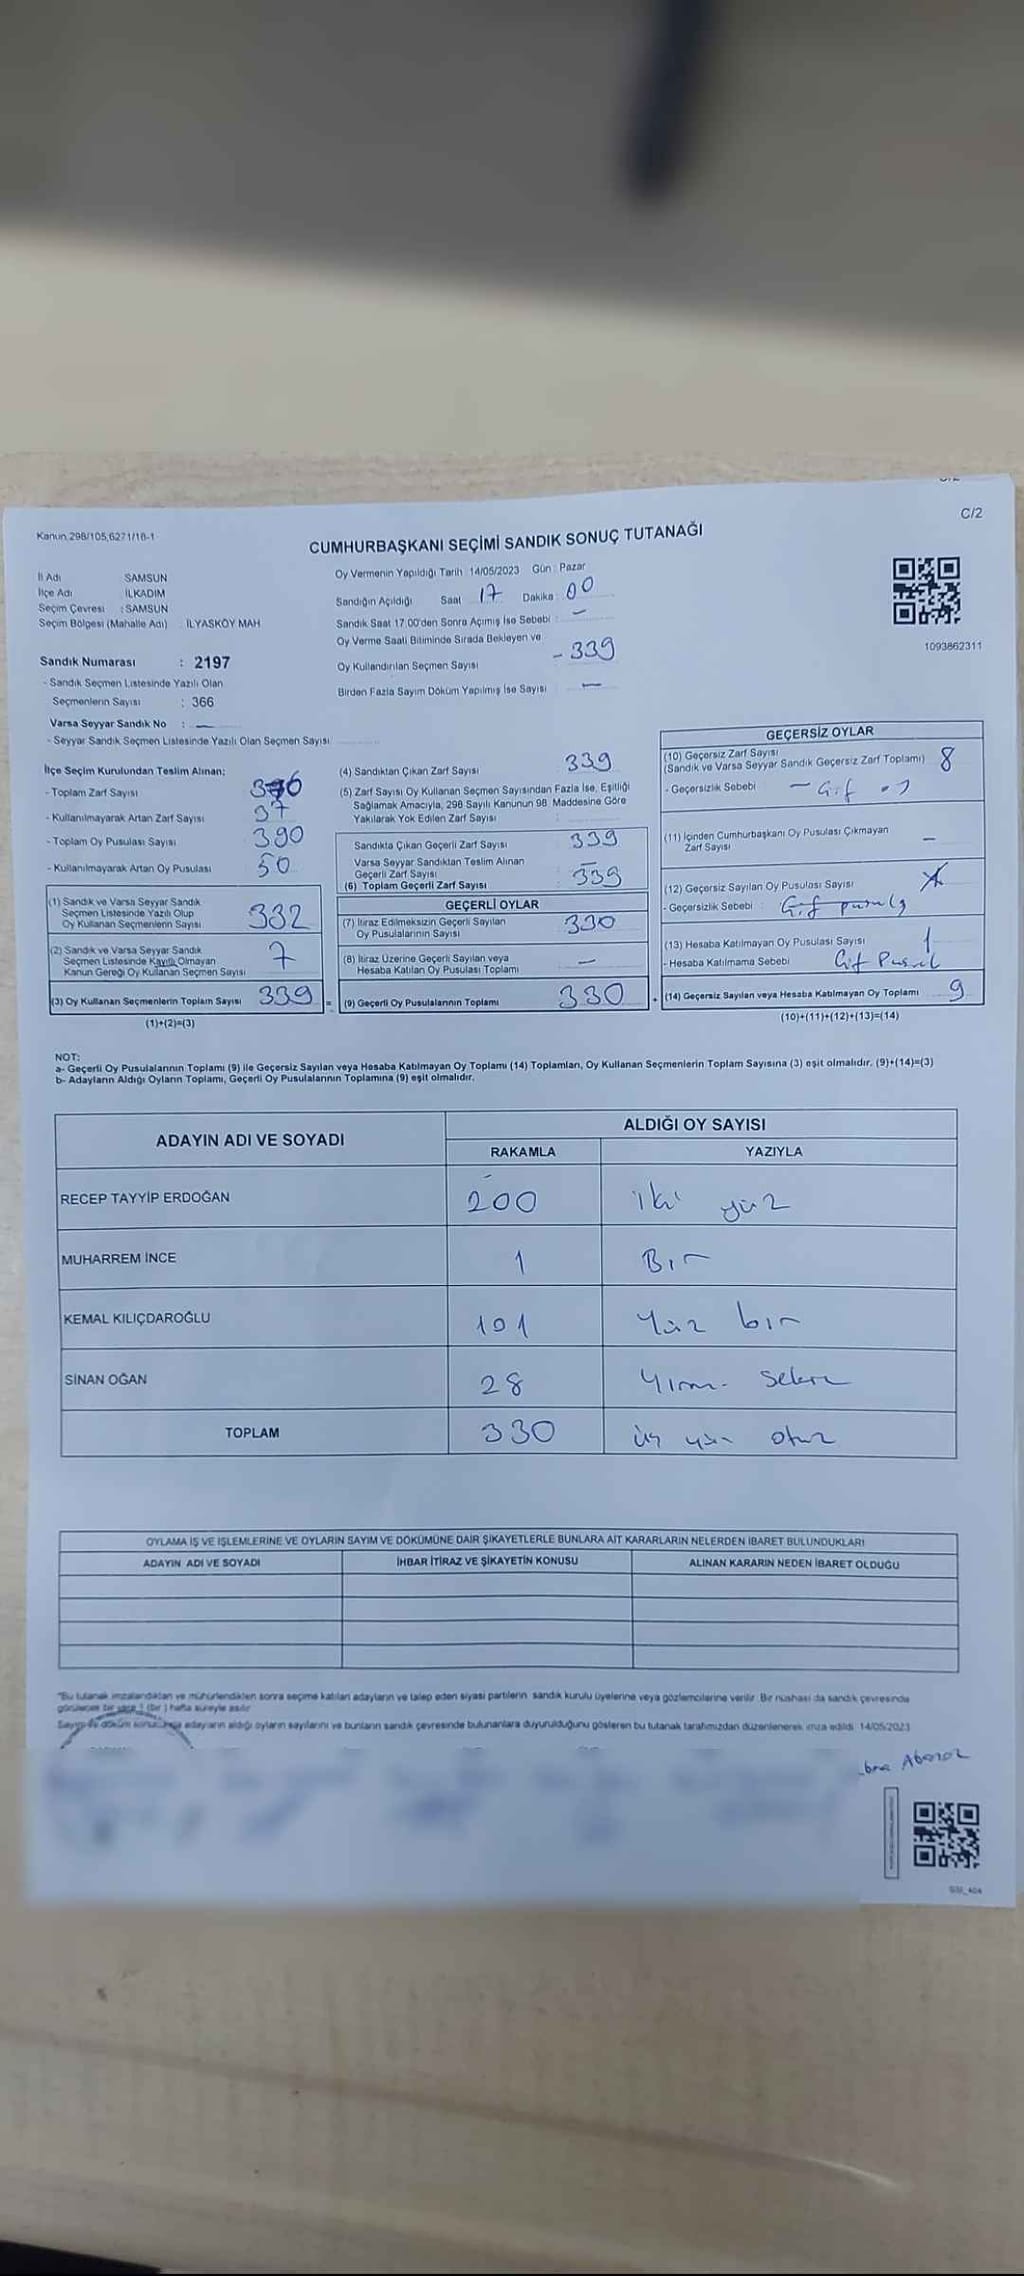 C/2
Kanun.298/105,6271/16-1
CUMHURBAŞKANI SEÇİMİ SANDIK SONUÇ TUTANAĞI
İl Adı SAMSUN
İlçe Adı İLKADIM
Seçim Çevresi : SAMSUN
Seçim Bölgesi (Mahalle Adı) : İLYASKÖY MAH
Sandık Numarası : 2197
- Sandık Seçmen Listesinde Yazılı Olan
Seçmenlerin Sayısı : 366
Varsa Seyyar Sandık No : —
- Seyyar Sandık Seçmen Listesinde Yazılı Olan Seçmen Sayısı
Oy Vermenin Yapıldığı Tarih 14/05/2023 Gün : Pazar
Sandığın Açıldığı Saat 17 Dakika : 00
Sandık Saat 17.00'den Sonra Açımış İse Sebebi : —
Oy Verme Saati Bitiminde Sırada Bekleyen ve
Oy Kullandırılan Seçmen Sayısı - 339
Birden Fazla Sayım Döküm Yapılmış İse Sayısı —
1093862311
İlçe Seçim Kurulundan Teslim Alınan;
- Toplam Zarf Sayısı
- Kullanılmayarak Artan Zarf Sayısı 37
- Toplam Oy Pusulası Sayısı 390
- Kullanılmayarak Artan Oy Pusulası 50
(1) Sandık ve Varsa Seyyar Sandık
Seçmen Listesinde Yazılı Olup
Oy Kullanan Seçmenlerin Sayısı 332
(2) Sandık ve Varsa Seyyar Sandık
Seçmen Listesinde Kayıtlı Olmayan
Kanun Gereği Oy Kullanan Seçmen Sayısı 7
(3) Oy Kullanan Seçmenlerin Toplam Sayısı 339 =
(1)+(2)=(3)
(4) Sandıktan Çıkan Zarf Sayısı 339
(5) Zarf Sayısı Oy Kullanan Seçmen Sayısından Fazla İse, Eşitliği
Sağlamak Amacıyla, 298 Sayılı Kanunun 98 Maddesine Göre
Yakılarak Yok Edilen Zarf Sayısı
Sandıkta Çıkan Geçerli Zarf Sayısı 339
Varsa Seyyar Sandıktan Teslim Alınan
Geçerli Zarf Sayısı —
(6) Toplam Geçerli Zarf Sayısı 339
GEÇERLİ OYLAR
(7) İtiraz Edilmeksizin Geçerli Sayılan
Oy Pusulalarının Sayısı 330
(8) İtiraz Üzerine Geçerli Sayılan veya
Hesaba Katılan Oy Pusulası Toplamı —
(9) Geçerli Oy Pusulalarının Toplamı 330 +
GEÇERSİZ OYLAR
(10) Geçersiz Zarf Sayısı
(Sandık ve Varsa Seyyar Sandık Geçersiz Zarf Toplamı) 8
- Geçersizlik Sebebi — Gif oy
(11) İçinden Cumhurbaşkanı Oy Pusulası Çıkmayan
Zarf Sayısı —
(12) Geçersiz Sayılan Oy Pusulası Sayısı
- Geçersizlik Sebebi : Gif pusula
(13) Hesaba Katılmayan Oy Pusulası Sayısı 1
- Hesaba Katılmama Sebebi Gif Pusul
(14) Geçersiz Sayılan veya Hesaba Katılmayan Oy Toplamı 9
(10)+(11)+(12)+(13)=(14)
NOT:
a- Geçerli Oy Pusulalarının Toplamı (9) ile Geçersiz Sayılan veya Hesaba Katılmayan Oy Toplamı (14) Toplamları, Oy Kullanan Seçmenlerin Toplam Sayısına (3) eşit olmalıdır. (9)+(14)=(3)
b- Adayların Aldığı Oyların Toplamı, Geçerli Oy Pusulalarının Toplamına (9) eşit olmalıdır.
ADAYIN ADI VE SOYADI ALDIĞI OY SAYISI
RAKAMLA YAZIYLA
RECEP TAYYİP ERDOĞAN 200 iki yüz
MUHARREM İNCE 1 Bir
KEMAL KILIÇDAROĞLU 101 Yüz bir
SİNAN OĞAN 28 Yirmi Sekiz
TOPLAM 330 üç yüz otuz
OYLAMA İŞ VE İŞLEMLERİNE VE OYLARIN SAYIM VE DÖKÜMÜNE DAİR ŞİKAYETLERLE BUNLARA AİT KARARLARIN NELERDEN İBARET BULUNDUKLARI
ADAYIN ADI VE SOYADI İHBAR İTİRAZ VE ŞİKAYETİN KONUSU ALINAN KARARIN NEDEN İBARET OLDUĞU
*Bu tutanak imzalandıktan ve mühürlendikten sonra seçime katılan adayların ve talep eden siyasi partilerin sandık kurulu üyelerine veya gözlemcilerine verilir. Bir nüshası da sandık çevresinde
görülecek bir yere 1 (bir ) hafta süreyle asılır
Sayım ve döküm sonucunda adayların aldığı oyların sayılarını ve bunların sandık çevresinde bulunanlara duyurulduğunu gösteren bu tutanak tarafımızdan düzenlenerek imza edildi. 14/05/2023